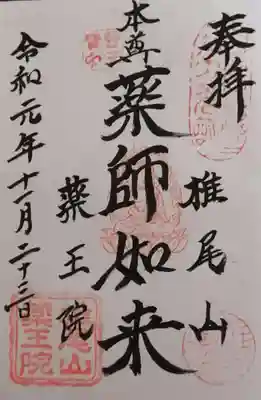 奉拝
椎尾山
本尊
薬師如来
薬王院
令和元年十一月二十三日
椎尾山
薬王院